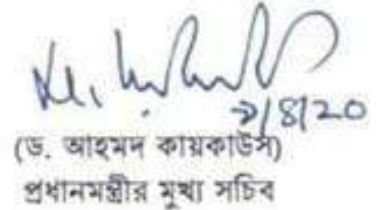 ৯/৪/২০
(ড. আহমদ কায়কাউস)
প্রধানমন্ত্রীর মুখ্য সচিব